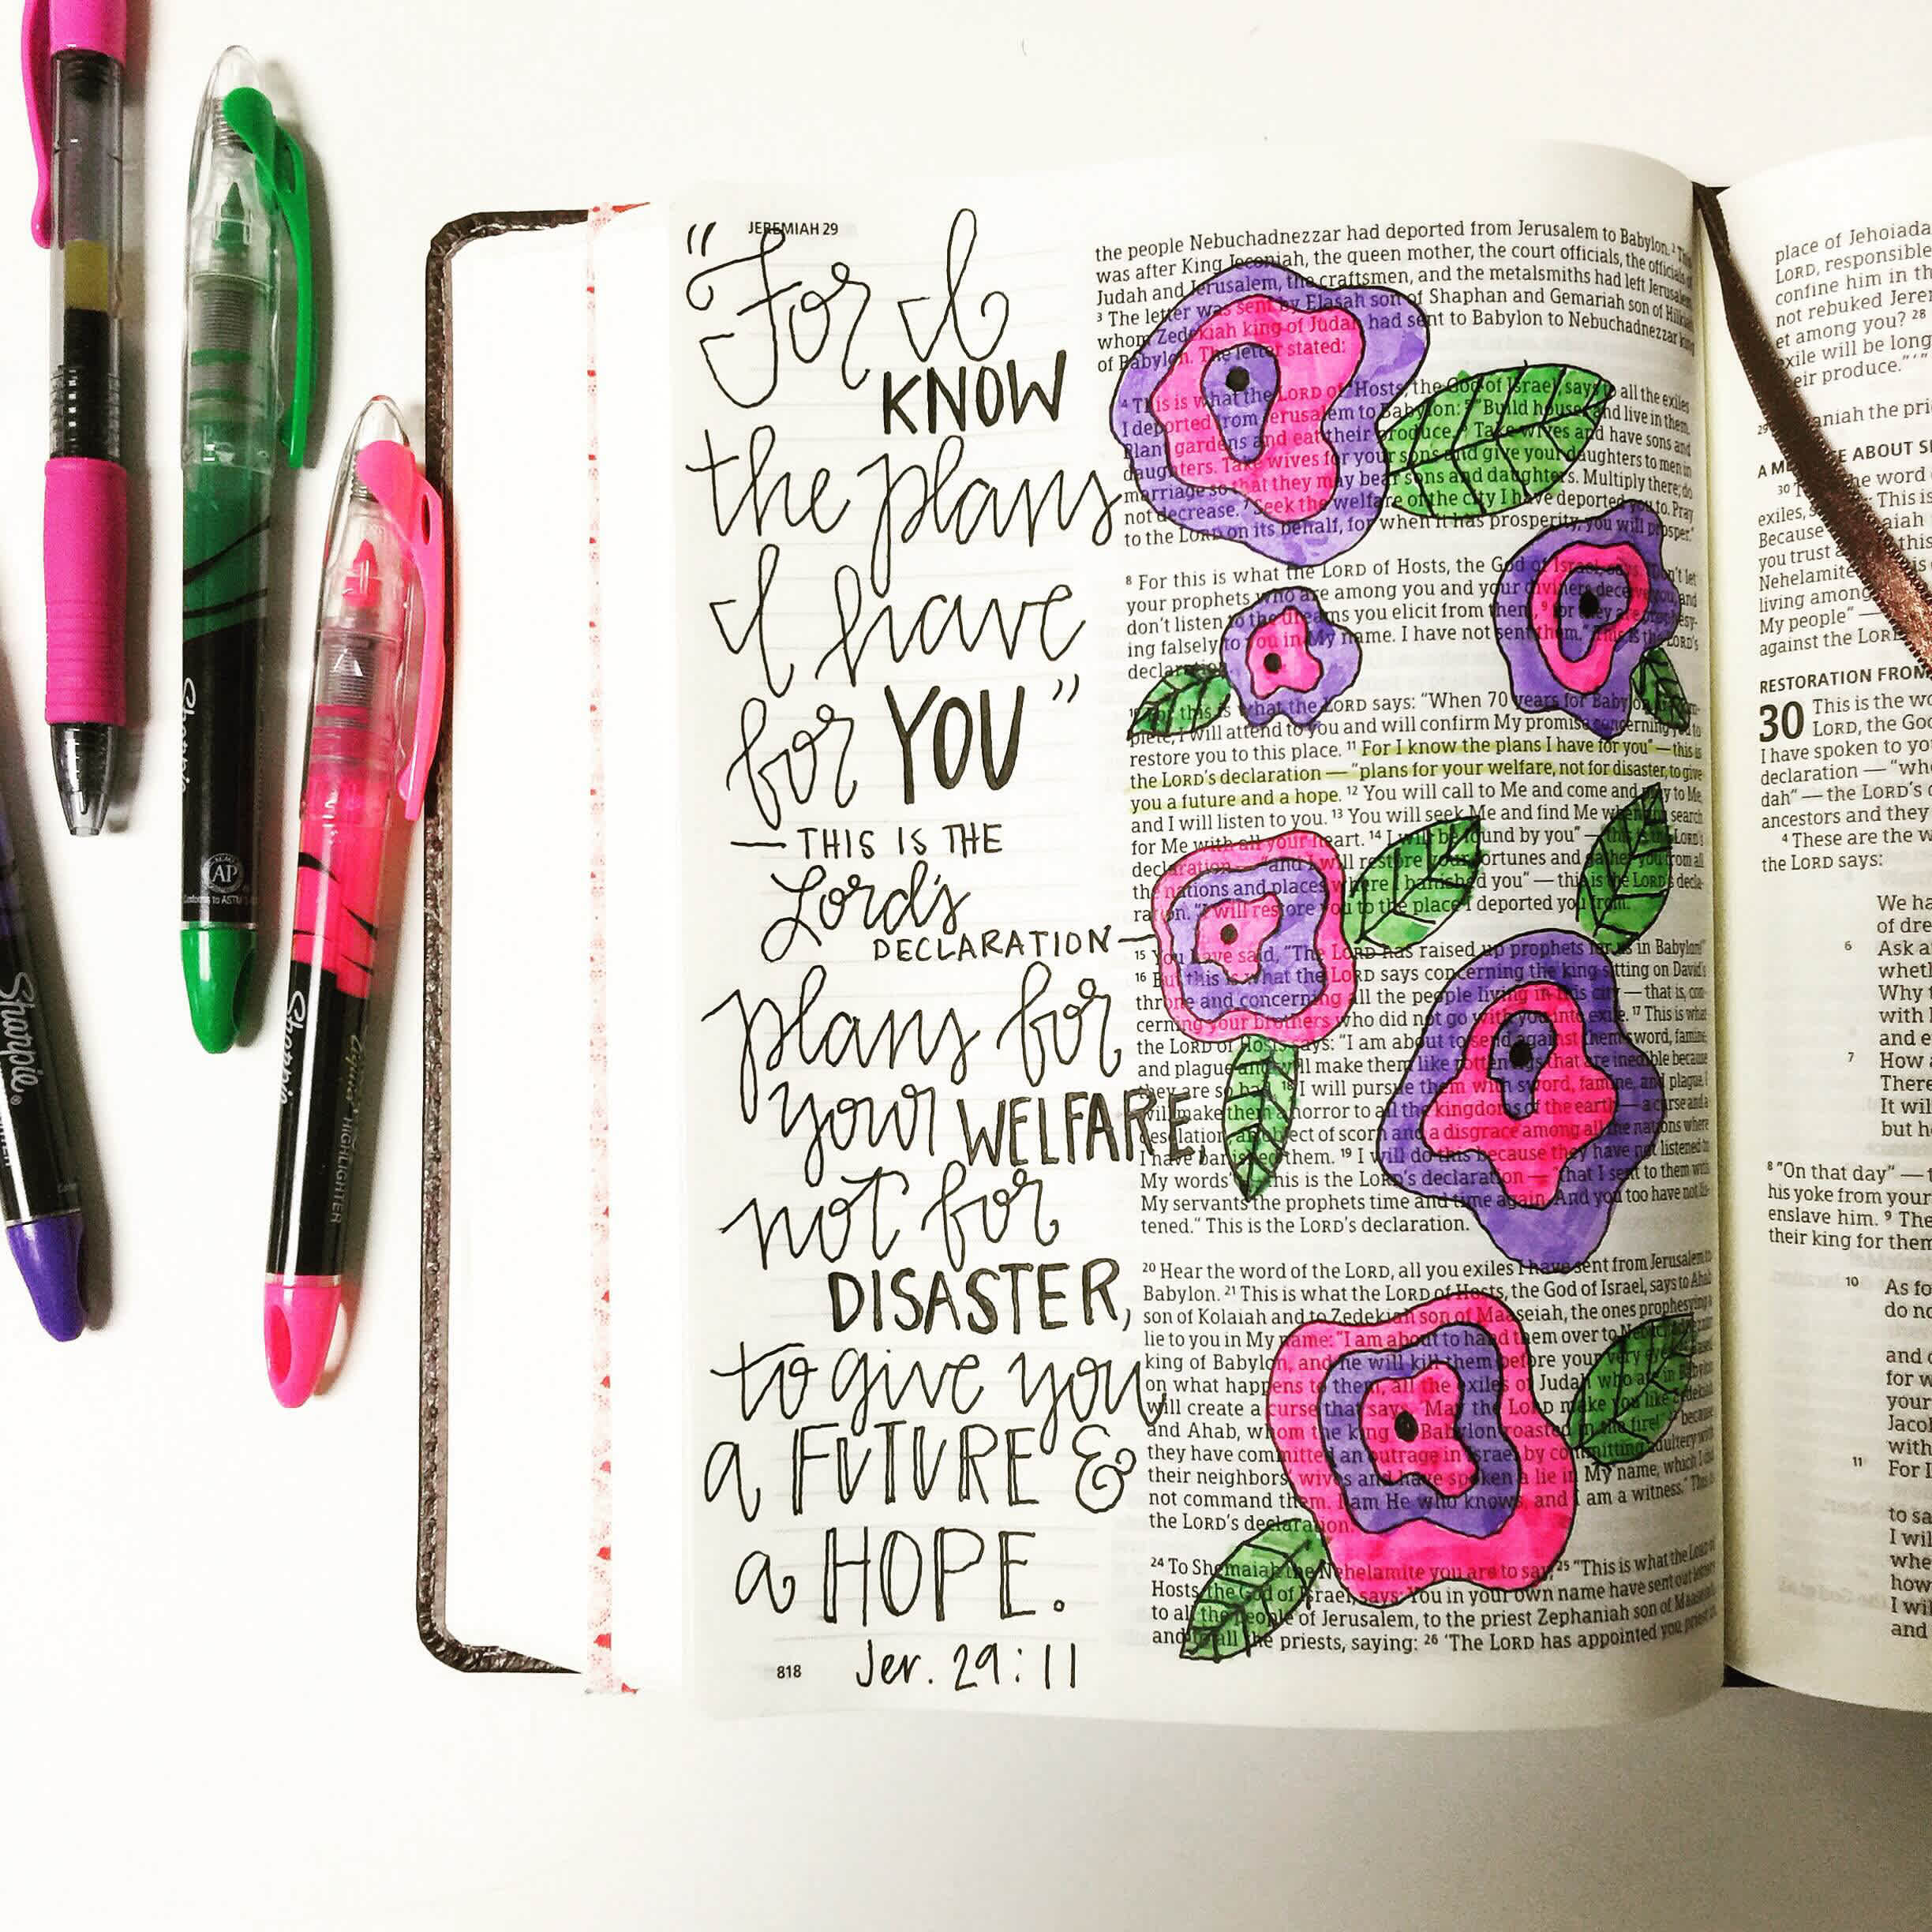 JEREMIAH 29
"For I
KNOW
the plans
I have
for YOU"
— THIS IS THE
Lord's
DECLARATION —
plans for
your WELFARE,
not for
DISASTER,
to give you
a FUTURE &
a HOPE.
Jer. 29:11
818
the people Nebuchadnezzar had deported from Jerusalem to Babylon. 2
was after King Jeconiah, the queen mother, the court officials, the officials of
Judah and Jerusalem, the craftsmen, and the metalsmiths had left Jerusalem.
3 The letter was sent by Elasah son of Shaphan and Gemariah son of Hilkiah
whom Zedekiah king of Judah had sent to Babylon to Nebuchadnezzar king
of Babylon. The letter stated:
4 This is what the LORD of Hosts, the God of Israel, says to all the exiles
I deported from Jerusalem to Babylon: 5 "Build houses and live in them.
Plant gardens and eat their produce. 6 Take wives and have sons and
daughters. Take wives for your sons and give your daughters to men in
marriage so that they may bear sons and daughters. Multiply there; do
not decrease. 7 Seek the welfare of the city I have deported you to. Pray
to the LORD on its behalf, for when it has prosperity, you will prosper."
8 For this is what the LORD of Hosts, the God of Israel, says: "Don't let
your prophets who are among you and your diviners deceive you, and
don't listen to the dreams you elicit from them, 9 for they are prophesy-
ing falsely to you in My name. I have not sent them." This is the LORD's
declaration.
10 For this is what the LORD says: "When 70 years for Babylon are com-
plete, I will attend to you and will confirm My promise concerning you to
restore you to this place. 11 For I know the plans I have for you" — this is
the LORD's declaration — "plans for your welfare, not for disaster, to give
you a future and a hope. 12 You will call to Me and come and pray to Me,
and I will listen to you. 13 You will seek Me and find Me when you search
for Me with all your heart. 14 I will be found by you" — this is the LORD's
declaration — "and I will restore your fortunes and gather you from all
the nations and places where I banished you" — this is the LORD's decla-
ration. "I will restore you to the place I deported you from."
15 You have said, "The LORD has raised up prophets for us in Babylon!"
16 But this is what the LORD says concerning the king sitting on David's
throne and concerning all the people living in this city — that is, con-
cerning your brothers who did not go with you into exile. 17 This is what
the LORD of Hosts says: "I am about to send against them sword, famine,
and plague and will make them like rotten figs that are inedible because
they are so bad. 18 I will pursue them with sword, famine, and plague. I
will make them a horror to all the kingdoms of the earth — a curse and a
desolation, an object of scorn and a disgrace among all the nations where
I have banished them. 19 I will do this because they have not listened to
My words" — this is the LORD's declaration — "that I sent to them with
My servants the prophets time and time again. And you too have not lis-
tened." This is the LORD's declaration.
20 Hear the word of the LORD, all you exiles I have sent from Jerusalem to
Babylon. 21 This is what the LORD of Hosts, the God of Israel, says to Ahab
son of Kolaiah and to Zedekiah son of Maaseiah, the ones prophesying a
lie to you in My name: "I am about to hand them over to
king of Babylon, and he will kill them before your very eyes.
on what happens to them, all the exiles of Judah who are in Babylon
will create a curse that says, 'May the LORD make you like Zedekiah
and Ahab, whom the king of Babylon roasted in the fire!' 23 because
they have committed an outrage in Israel by committing adultery with
their neighbors' wives and have spoken a lie in My name, which I did
not command them. I am He who knows, and I am a witness." This is
the LORD's declaration.
24 To Shemaiah the Nehelamite you are to say, 25 "This is what the LORD of
Hosts, the God of Israel, says: You in your own name have sent out letters
to all the people of Jerusalem, to the priest Zephaniah son of Maaseiah,
and to all the priests, saying: 26 'The LORD has appointed you priest in
place of Jehoiada
LORD, responsible
confine him in th
not rebuked Jerem
et among you? 28
exile will be long
eir produce."'"
29 aniah the pri
ABOUT S
30 he word
exiles, This is
Because
you trust this
Nehelamite
living among
My people" —
against the LORD
RESTORATION FROM
30 This is the wo
LORD, the God
I have spoken to yo
declaration — "whe
dah" — the LORD's d
ancestors and they
4 These are the w
the LORD says:
We ha
of dre
6 Ask a
wheth
Why
with
and e
7 How
There
It wil
but h
8 "On that day" —
his yoke from your
enslave him. 9 The
their king for them
10 As fo
do no
and
for w
your
Jaco
with
11 For I
to sa
I wil
whe
how
I wil
and
Sharpie
AP
Conforms to ASTM
Sharpie
HIGHLIGHTER
Sharpie®